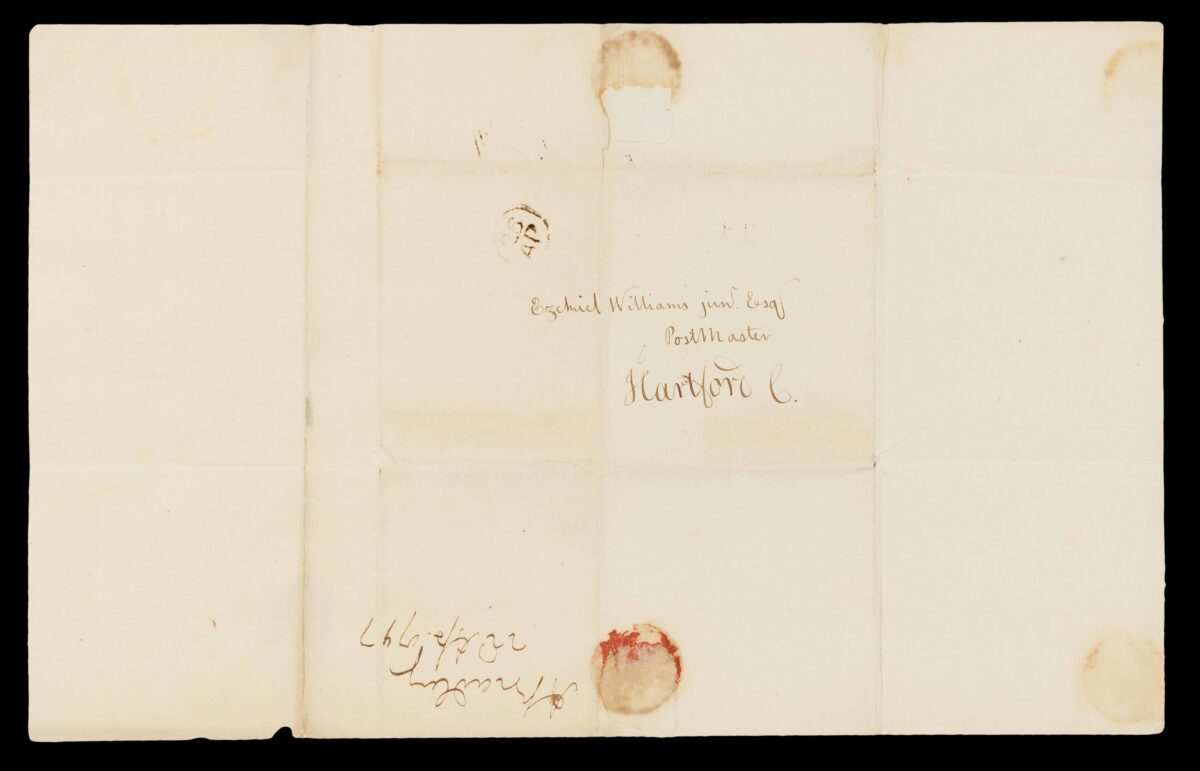 26
AP
Ezekiel Williams junr. Esqr
PostMaster
Hartford C.
A Bradley
22 Ap. 1797